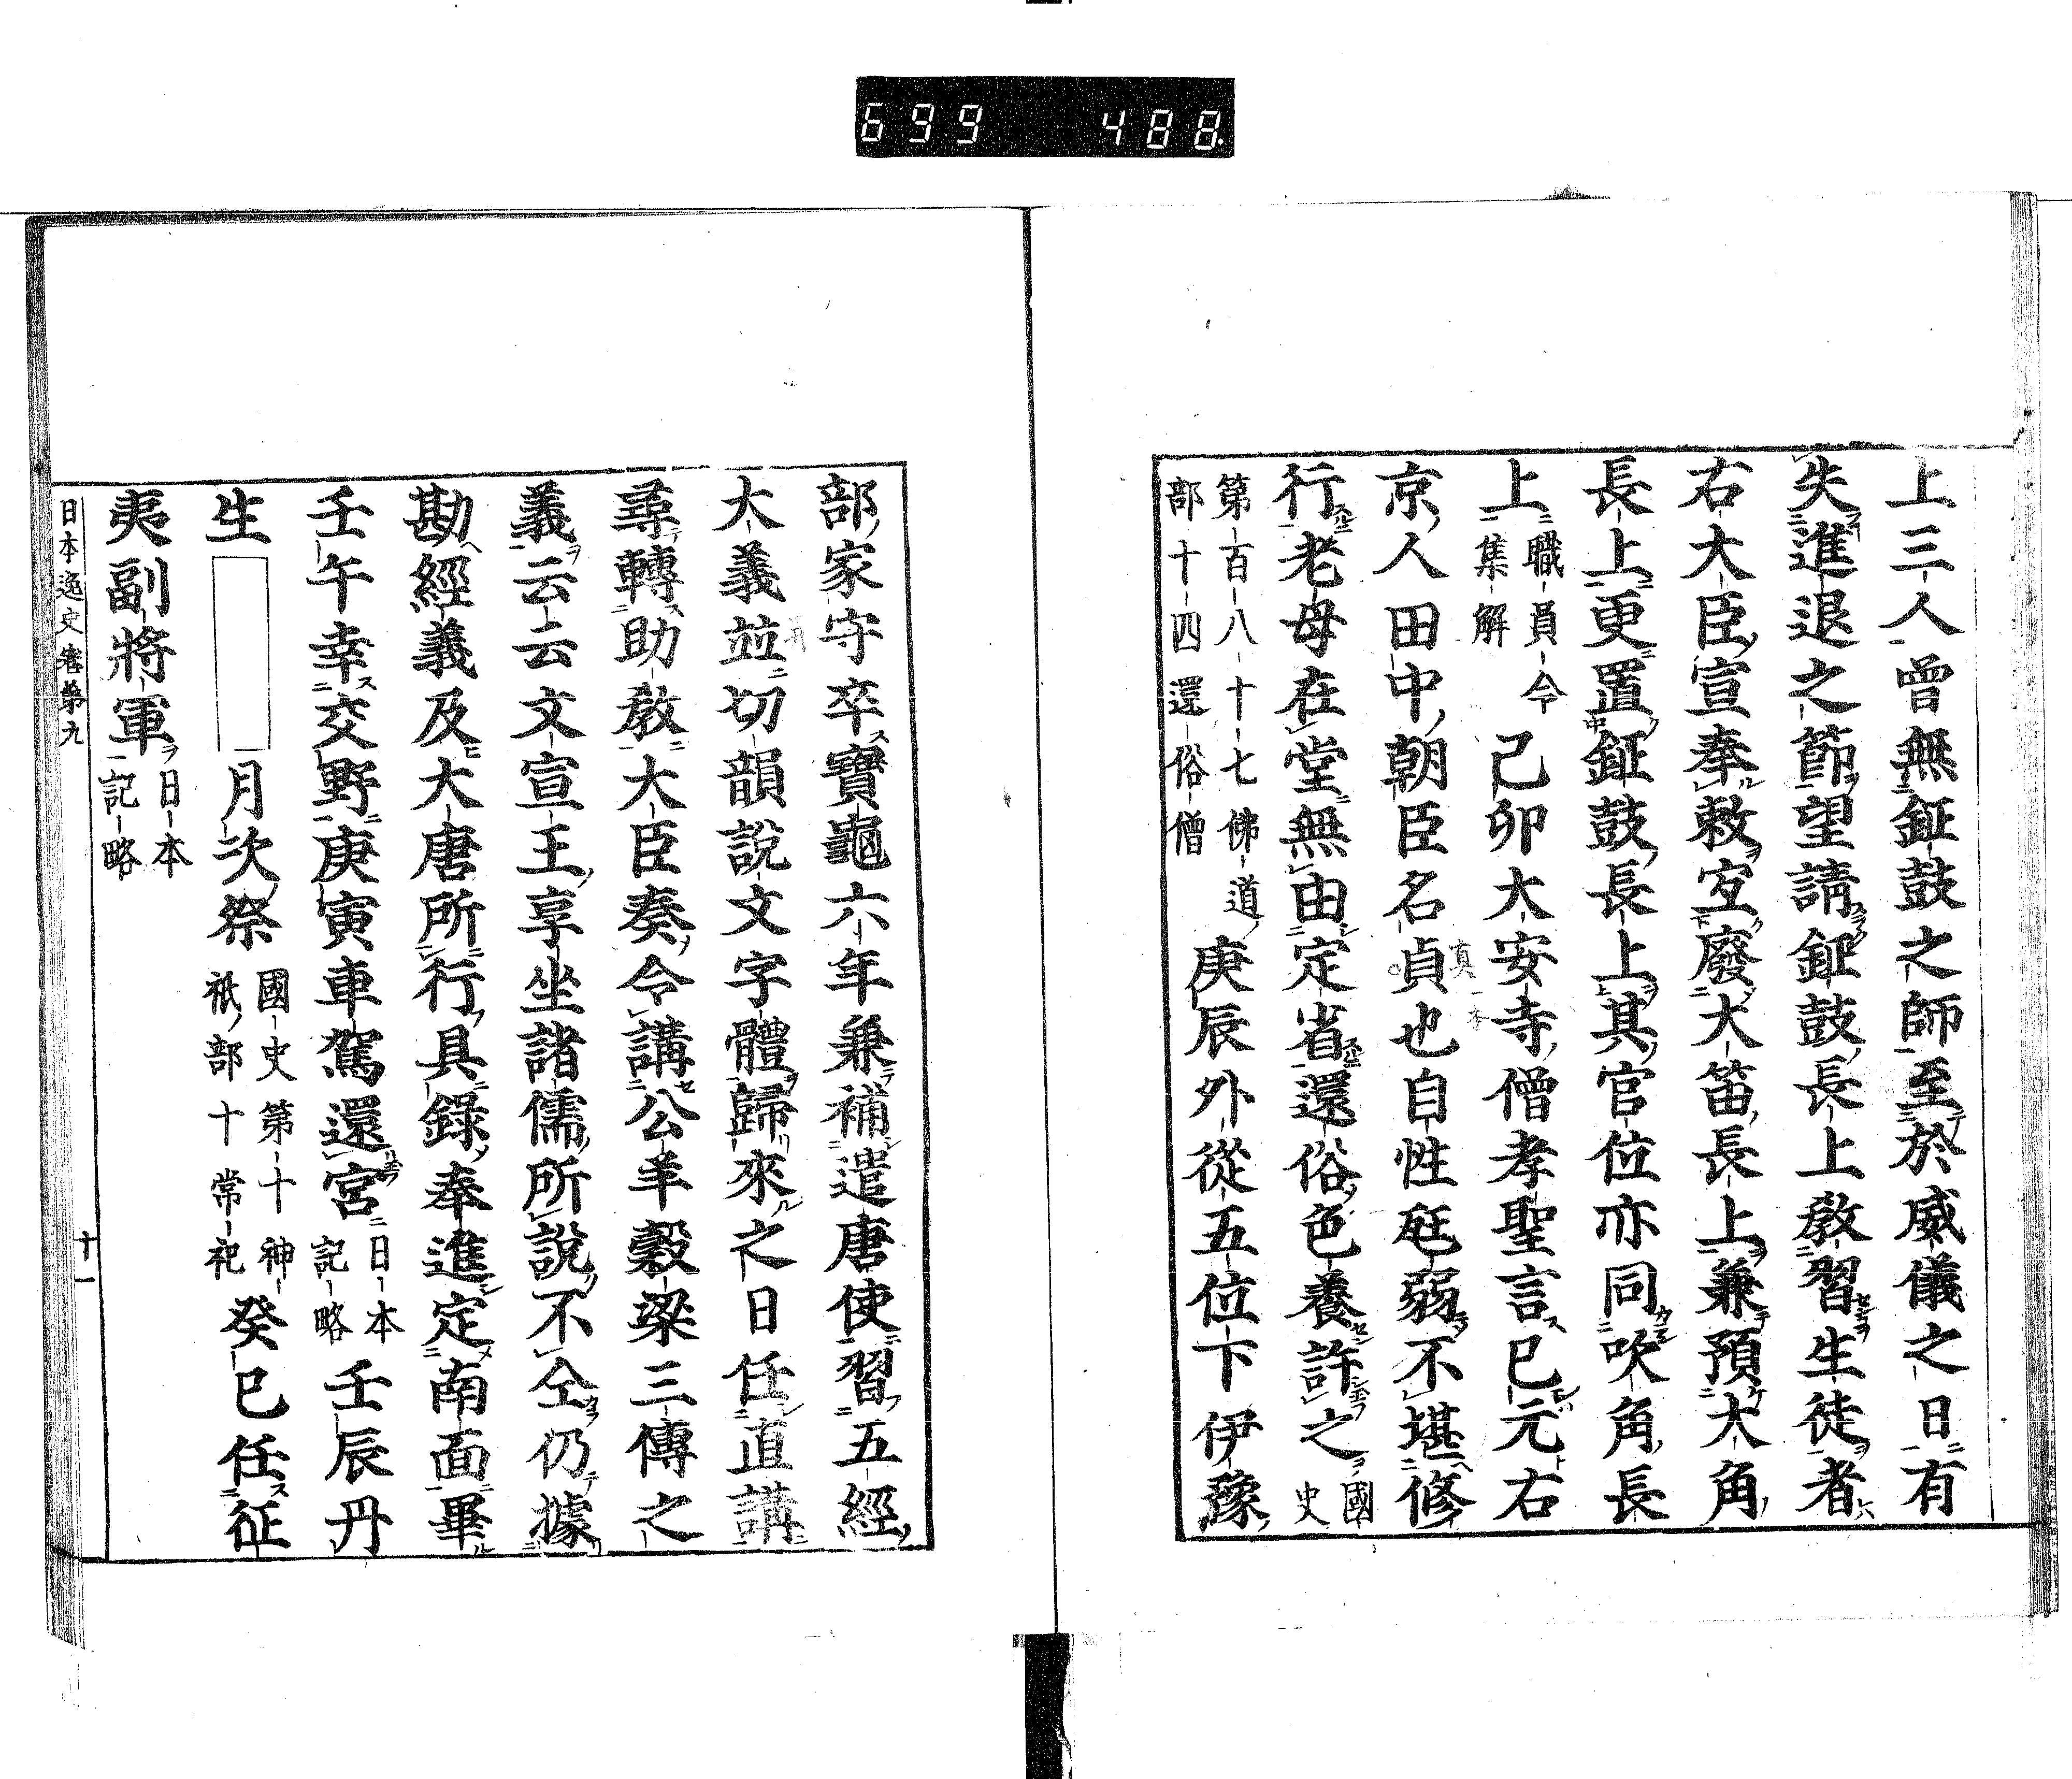 699 488
上三人曾無鉦鼓之師至於威儀之日有
失進退之節望請鉦鼓長上教習生徒者
右大臣宣奉敕宜廢大笛長上兼預大角
長上更置鉦鼓長上其官位亦同吹角長
上職員令集解己卯大安寺僧孝聖言已元右
京人田中朝臣名貞也自性尫弱不堪修
真一本
行老母在堂無由定省還俗色養許之國史
第百八十七佛道部十四還俗僧庚辰外從五位下伊豫
部家守卒寶龜六年兼補遣唐使習五經
大義並切韻說文字體歸來之日任直講
尋轉助教大臣奏令講公羊穀梁三傳之
義云云文宣王享坐諸儒所說不仝仍據
勘經義及大唐所行具錄奉進定南面畢
壬午幸交野庚寅車駕還宮日本記略壬辰丹
生月次祭國史第十神祇部十常祀癸巳任征
夷副將軍日本記略
日本逸史卷第九 十一